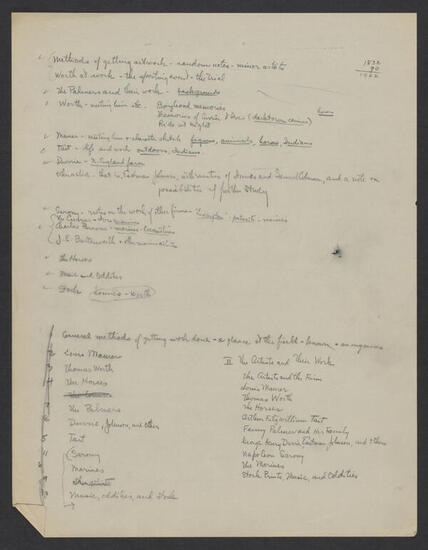 Methods of getting artwork - random notes - minor artists
Worth at work - the sporting event - the trial
The Palmers and their work - backgrounds
Worth - meeting him etc. Boyhood memories
Memories of Currier & Ives (darktown comics)
Ride at night
Maurer - meeting him + character sketch figures, animals, horses, Indians
Tait - life and work outdoors, Indians
Durrie - N. England farm
that is, Eastman Johnson, and a note on
possibilities of further study
Sarony - notes on the work of other firms - portraits - marines
Charles Parsons - marines -
J. E. Butterworth +
The Horses
Music and Oddities
Stock comics - Worth
1832
90
1922
General methods of getting work done - a glance at the field - known + anonymous
2 Louis Maurer
3 Thomas Worth
4 The Horses
The Palmers
Durrie, Johnson, and others
Tait
Sarony
Marines
Music, oddities, and Stock
II The Artists and Their Work
The Artists and the Firm
Louis Maurer
Thomas Worth
The Horses
Arthur Fitzwilliam Tait
Fanny Palmer and Her Family
George Henry Durrie, Eastman Johnson, and others
Napoleon Sarony
The Marines
Stock Prints, Music, and Oddities